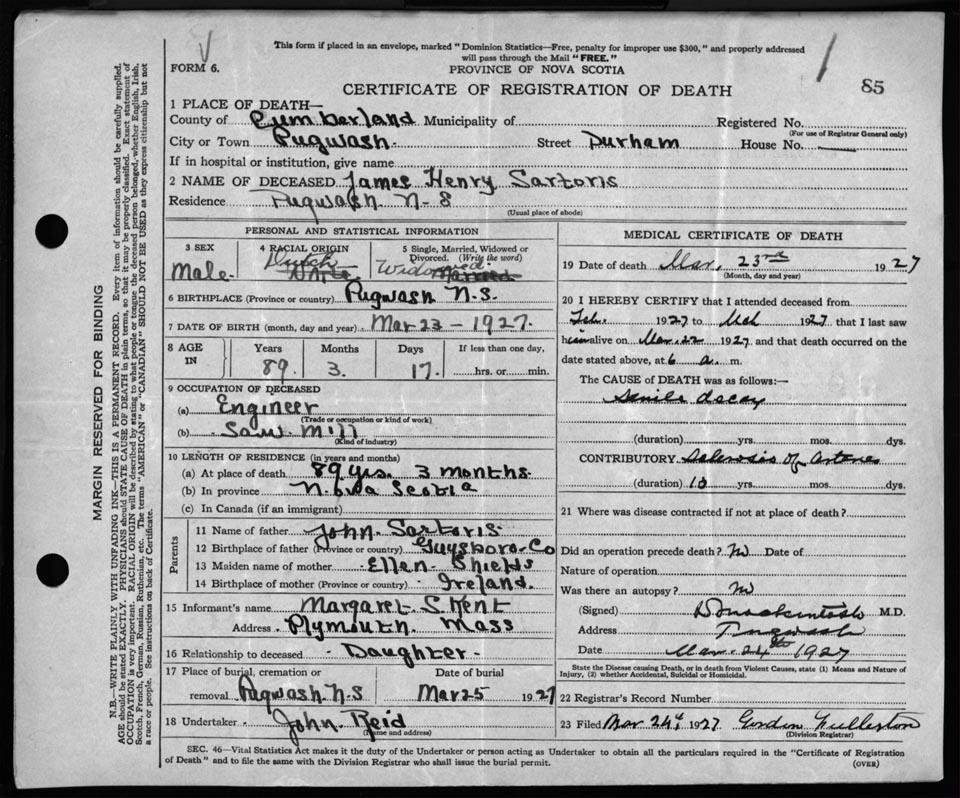 This form if placed in an envelope, marked "Dominion Statistics—Free, penalty for improper use $300," and properly addressed
will pass through the Mail "FREE."
FORM 6.
PROVINCE OF NOVA SCOTIA
CERTIFICATE OF REGISTRATION OF DEATH
85
1 PLACE OF DEATH—
County of Cumberland Municipality of Registered No.
(For use of Registrar General only)
City or Town Pugwash. Street Durham House No.
If in hospital or institution, give name
2 NAME OF DECEASED James Henry Sartoris
Residence Pugwash N-S
(Usual place of abode)
PERSONAL AND STATISTICAL INFORMATION
3 SEX 4 RACIAL ORIGIN 5 Single, Married, Widowed or
Divorced. (Write the word)
Male. Dutch White Widowed. Married
6 BIRTHPLACE (Province or country) Pugwash N.S.
7 DATE OF BIRTH (month, day and year) Mar 23 - 1927.
8 AGE IN Years Months Days If less than one day,
89. 3. 17. hrs. or min.
9 OCCUPATION OF DECEASED
(a) Engineer
(Trade or occupation or kind of work)
(b) Saw Mill
(Kind of industry)
10 LENGTH OF RESIDENCE (in years and months)
(a) At place of death 89 yrs. 3 months.
(b) In province Nova Scotia
(c) In Canada (if an immigrant)
Parents
11 Name of father John Sartoris
12 Birthplace of father (Province or country) Guysboro-Co
13 Maiden name of mother Ellen Shields
14 Birthplace of mother (Province or country) Ireland.
15 Informant's name Margaret S. Kent
Address Plymouth. Mass
16 Relationship to deceased Daughter.
17 Place of burial, cremation or Date of burial
removal Pugwash N.S Mar 25 1927
18 Undertaker John Reid
(Name and address)
MEDICAL CERTIFICATE OF DEATH
19 Date of death Mar. 23rd 1927
(Month, day and year)
20 I HEREBY CERTIFY that I attended deceased from
Feb. 1927 to Mch 1927 that I last saw
him alive on Mar. 22 1927 and that death occurred on the
date stated above, at 6 a. m.
The CAUSE of DEATH was as follows:—
Senile decay
(duration) yrs. mos. dys.
CONTRIBUTORY Sclerosis of Arteries
(duration) 10 yrs. mos. dys.
21 Where was disease contracted if not at place of death?
Did an operation precede death? No Date of
Nature of operation
Was there an autopsy? No
(Signed) M.D.
Address Pugwash
Date Mar. 24th 1927
State the Disease causing Death, or in death from Violent Causes, state (1) Means and Nature of
Injury, (2) whether Accidental, Suicidal or Homicidal.
22 Registrar's Record Number
23 Filed Mar 24th 1927 Gordon
(Division Registrar)
SEC. 46—Vital Statistics Act makes it the duty of the Undertaker or person acting as Undertaker to obtain all the particulars required in the "Certificate of Registration
of Death" and to file the same with the Division Registrar who shall issue the burial permit.
(OVER)
MARGIN RESERVED FOR BINDING
N.B.—WRITE PLAINLY WITH UNFADING INK—THIS IS A PERMANENT RECORD. Every item of information should be carefully supplied.
AGE should be stated EXACTLY. PHYSICIANS should STATE CAUSE OF DEATH in plain terms, so that it may be properly classified. Exact statement of
OCCUPATION is very important. RACIAL ORIGIN will be described by stating to what people or tongue the deceased person belonged, whether English, Irish,
Scotch, French, German, Russian, Ruthenian, etc. The terms "AMERICAN" or "CANADIAN" SHOULD NOT BE USED as they express citizenship but not
a race or people. See instructions on back of Certificate.